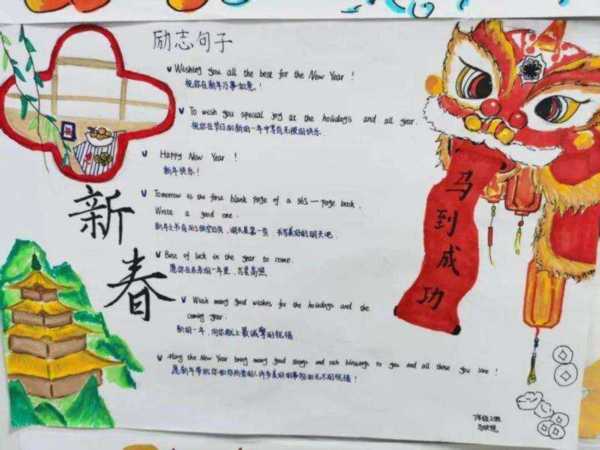 励志句子
Wishing you all the best for the New Year!
祝你在新年万事如意!
To wish you special joy at the holidays and all year.
祝你在节日和新的一年中享有无限的快乐.
Happy New Year!
新年快乐!
Tomorrow is the first blank page of a 365-page book.
Write a good one.
Best of luck in the year to come.
愿你在未来的一年里,吉星高照
Warm many good wishes for the holidays and the
coming year.
新的一年,向你献上最诚挚的祝福
May the New Year bring many good things and rich blessings to you and all those you love!
新春
马到成功